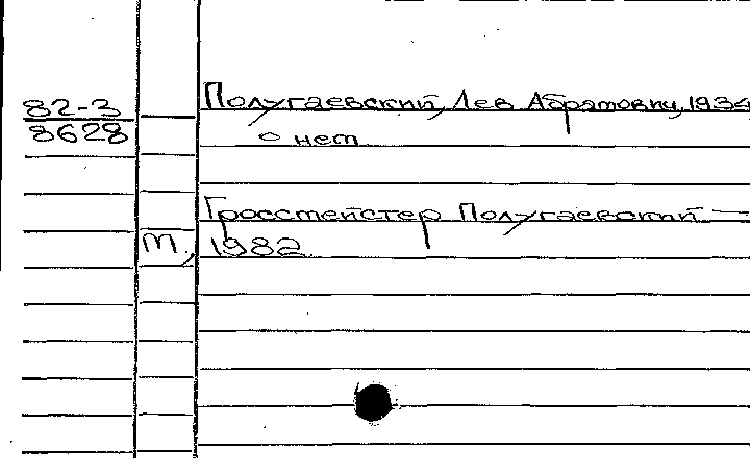 82-3
8628
Полугаевский, Лев Абрамович, 1934
о нет
Гроссмейстер Полугаевский —
М, 1982